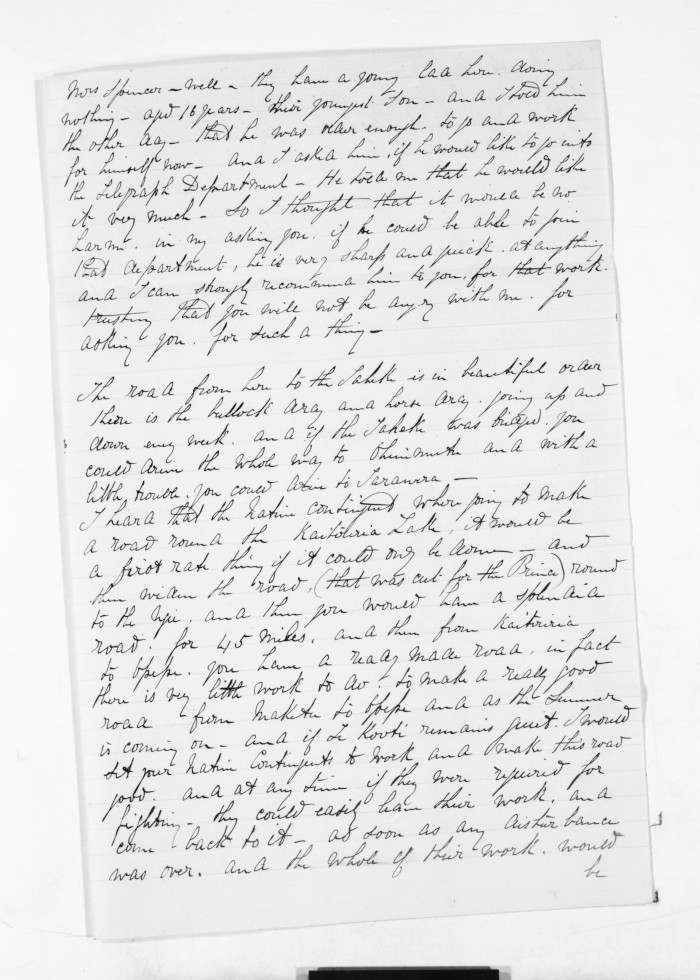 Mrs Spencer - well - they have a young lad here. doing
nothing - aged 16 years - their youngest Son - and I told him
the other day - that he was older enough. to go and work
for himself now - and I asked him, if he would like to go into
the Telegraph Department - He told me that he would like
it very much - So I thought that it would be no
harm. in my asking you. if he could be able to join
that department, he is very sharp and quick. at anything
and I can strongly recommend him to you, for that work.
trusting that you will not be angry with me. for
asking you. for such a thing -
The road from here to the Taheke is in beautiful order
there is the bullock dray and horse dray. going up and
down every week. and if the Taheke was bridged. you
could drive the whole way to Ohinemutu and with a
little trouble. you could drive to Tarawera, -
I heard that the Native Contingent where going to make
a road round the Kaitiriria Lake, it would be
a first rate thing if it could only be done - and
then widen the road, (that was cut for the Prince) round
to the Ngae. and then you would have a splendid
road. for 45 miles. and then from Kaitiriria
to Opepe. you have a ready made road. in fact
there is very little work to do - to make a really good
road - from Maketu to Opepe and as the Summer
is coming on - and if Te Kooti remains quiet. I would
set your Native Contingents to work and make this road
good. and at any time if they were required for
fighting - they could easily leave their work. and
come back to it - as soon as any disturbance
was over. and the whole of their work. would
be